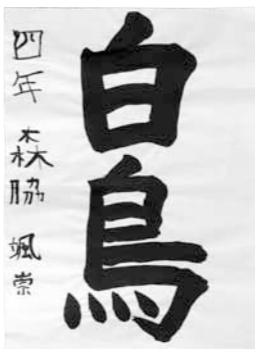 白鳥
四年 森脇 颯崇